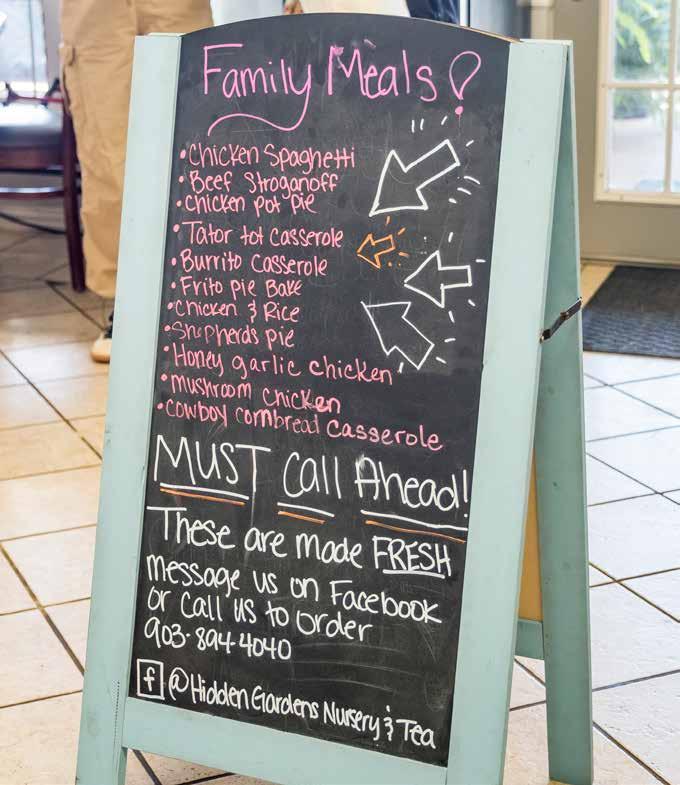 Family Meals!
• Chicken Spaghetti
• Beef Stroganoff
• Chicken pot pie
• Tator tot Casserole
• Burrito Casserole
• Frito pie Bake
• Chicken & Rice
• Shepherds pie
• Honey garlic chicken
• mushroom chicken
• Cowboy Cornbread Casserole
MUST Call Ahead!
These are made FRESH
message us on Facebook
or Call us to order
903-894-4040
f @Hidden Gardens Nursery & Tea